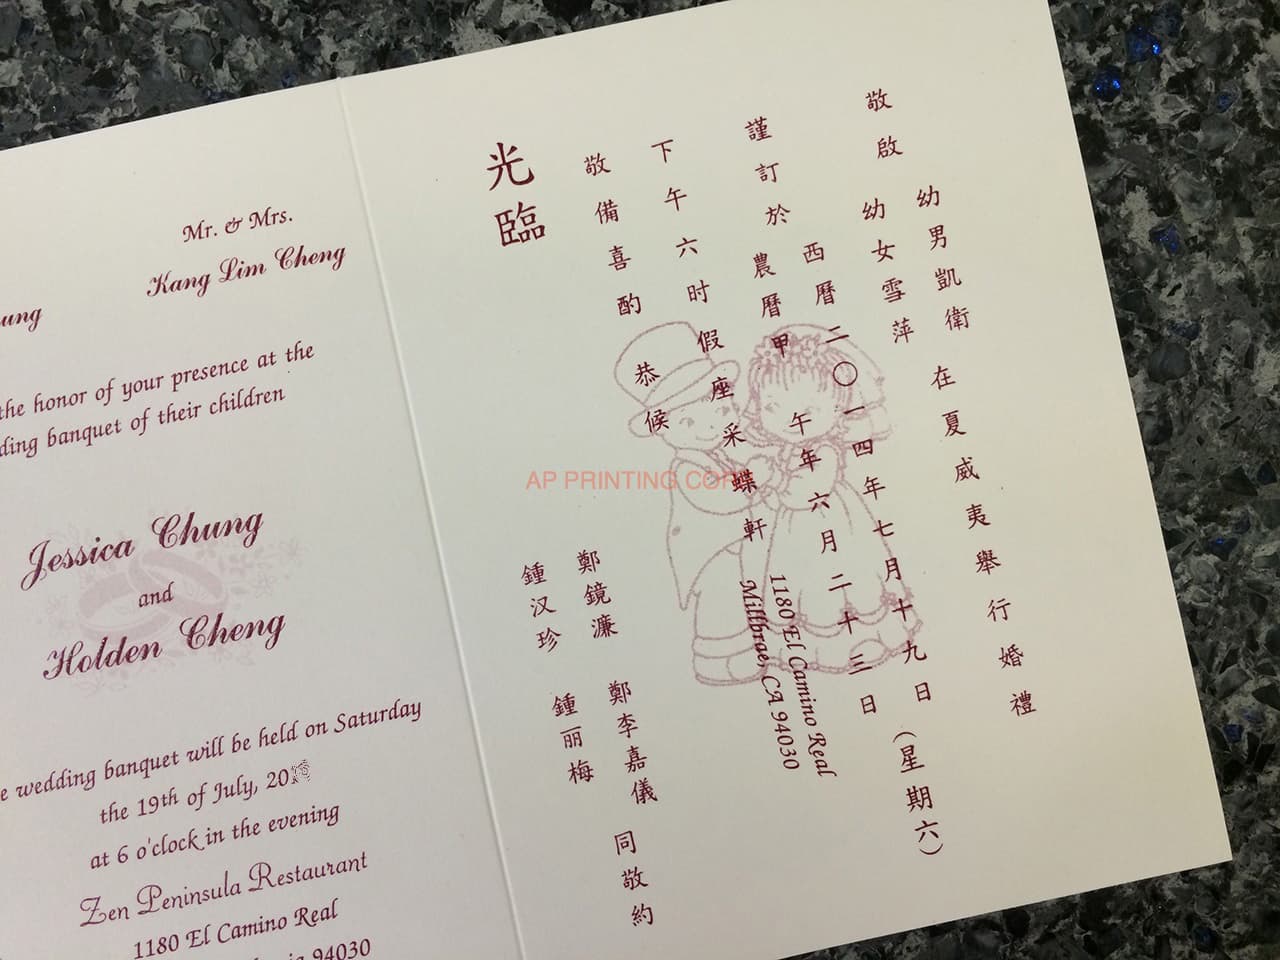 Mr. & Mrs.
Kang Lim Cheng
ung
the honor of your presence at the
ding banquet of their children
Jessica Chung
and
Holden Cheng
e wedding banquet will be held on Saturday
the 19th of July, 20
at 6 o'clock in the evening
Zen Peninsula Restaurant
1180 El Camino Real
94030
敬啟
幼男凱衛
幼女雪萍
在夏威夷舉行婚禮
謹訂於
西曆二〇一四年七月十九日(星期六)
農曆甲午年六月二十三日
下午六时假座采蝶軒
1180 El Camino Real
Millbrae, CA 94030
敬備喜酌
恭候
光臨
鄭鏡濂
鄭李嘉儀
鍾汉珍
鍾丽梅
同敬約
AP PRINTING COR